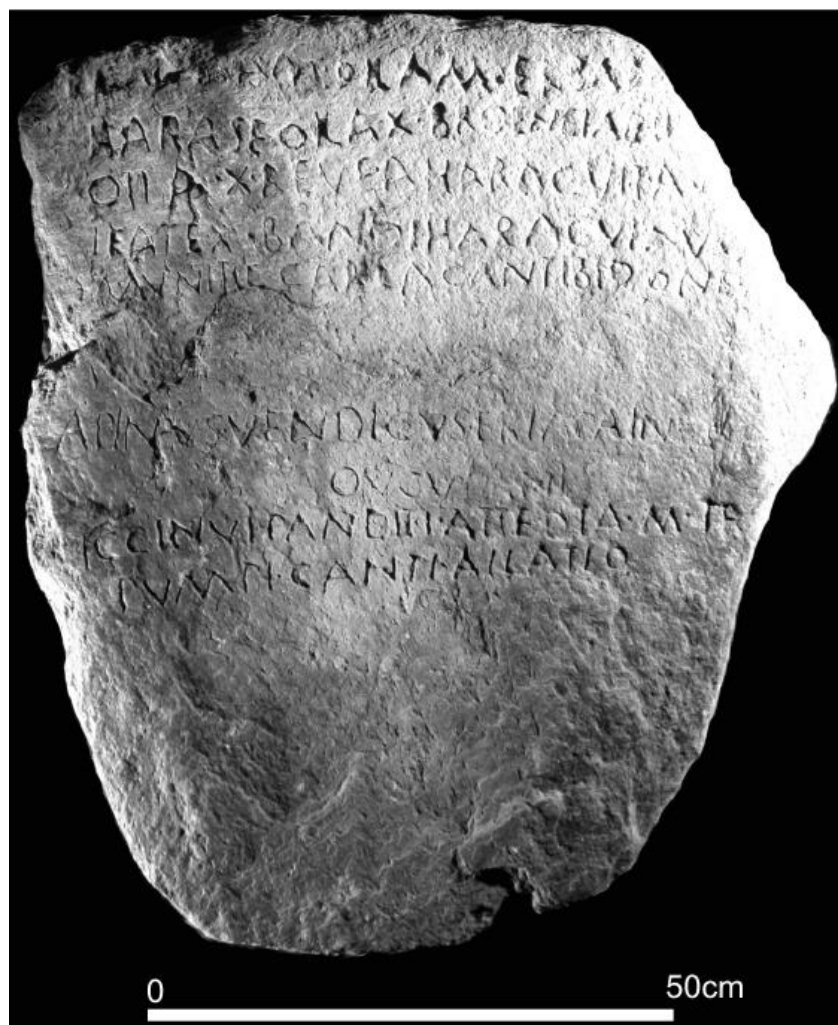 OILAM·ERBAM
HARASE OILA X·BROENEIAE H
OILA·X·REVE AHARACVI TA
IEATE X·BANDI HARACVI AV
MVNITIE CARIA CANTIBIDONE
APINVS VENDICVS ERIACAINV
ICCINVI PANDITI·ATTEDIA·M·TR
PVMPI·CANTI·AILATIO
0 50cm